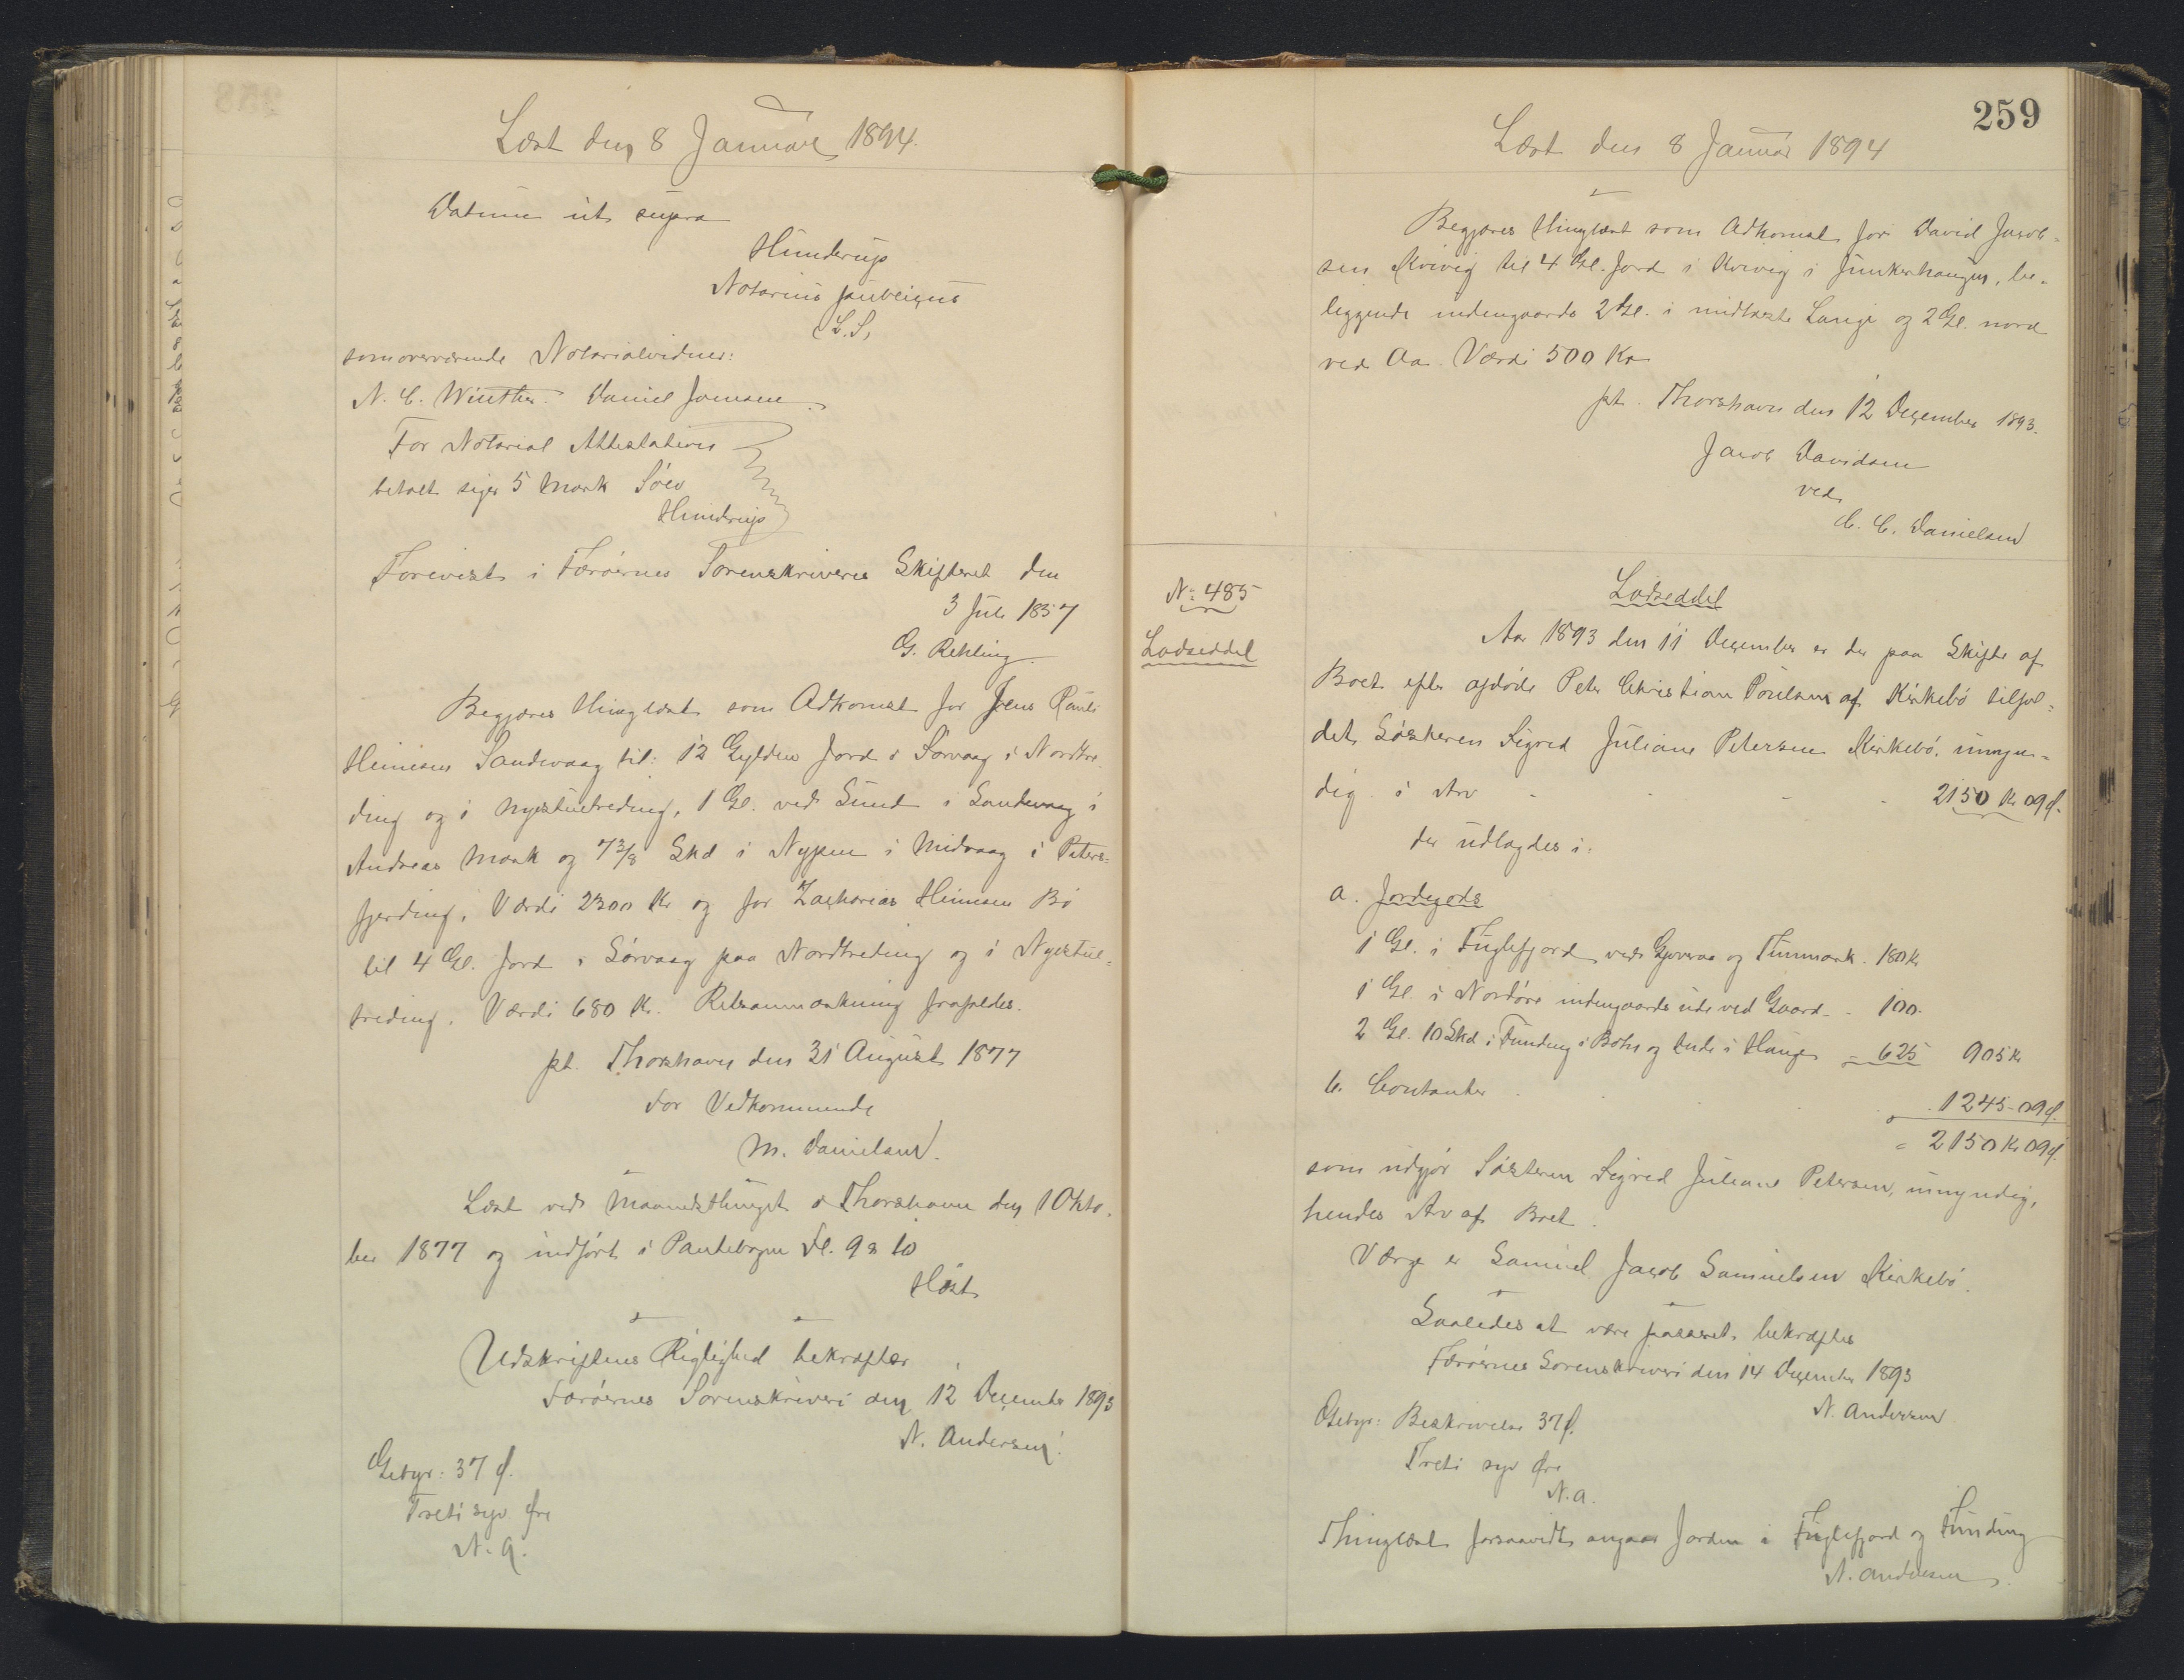 Læst den 8 Januar 1894.
Datum ut supra
Hunderup
Notarius publicus
L. S.
som overværende Notarialvidner:
N. C. Winther. Daniel Joensen.
For Notarial Attestation
betalt siger 5 Mark Sölv
Hunderup
Forevist i Færöernes Sorenskriveres Skifteret den
3 Juli 1857
G. Rehling.
Begjæres thinglæst som Adkomst for Jens Pauli
Heinesen Sandevaag til: 12 Gylden Jord i Sörvaag i Nordtre
ding og i Nystuetreding, 1 Gl. ved Sund i Sandevaag i
Andreas Mark og 7 3/8 Skd i Nypen i Midvaag i Peters=
fjerding, Værdi 2300 Kr og for Zacharias Heinesen Bö
til 4 Gl. Jord i Sörvaag paa Nordtreding og i Nystue=
treding. Værdi 680 Kr. Retsanmærkning frafaldes.
pt. Thorshavn den 31 August 1877
For Vedkommende
M. Danielsen.
Læst ved Maanedsthinget i Thorshavn den 1 Okto.
ber 1877 og indført i Pantebogen Fl. 9 & 10
Höst
Udskriftens Rigtighed bekræfter
Færöernes Sorenskriveri den 12 December 1893
N. Andersen.
Gebyr: 37 Ø.
Treti syv Øre
N. A.
259
Læst den 8 Januar 1894
Begjæres thinglæst som Adkomst for David Jacob=
sen Kvivig til 4 Gl. Jord i Kvivig i Junkerhaugen, be-
liggende indengaards 2 Gl. i midtarste Lange og 2 Gl. nord
ved Aa. Værdi 500 Kr
pt. Thorshavn den 12 December 1893.
Jacob Davidsen
ved
C. C. Danielsen
No: 485
Lodseddel
Lodseddel
Aar 1893 den 11 December er der paa Skifte af
Boet efter afdöde Peter Christian Poulsen af Kirkebö tilfal=
det Søsteren Sigred Juliane Petersen Kirkebö, umyn=
dig i Arv - - - 2150 Kr 09 Ø.
der udlagdes i:
a. Jordegods
1 Gl. i Fuglefjord ved Gjoveraa og Tunmark. 180 Kr
1 Gl. i Nordöre indengaards ude ved Gaard - - 100.
2 Gl. 10 Skd i Funding i Böhn og Inde i Hauge - 625 905 Kr
b. Contanter . . . 1245-09 Ø.
= 2150 Kr 09 Ø.
som udgjør Søsteren Sigred Juliane Petersen, umyndig,
hendes Arv af Boet.
Værge er Samuel Jacob Samuelsen Kirkebö.
Saaledes at være passeret bekræftes
Færöernes Sorenskriveri den 14 December 1893
N. Andersen
Gebyr: Beskrivelse 37 Ø.
Treti syv Øre
N. A.
Thinglæst forsaavidt angaar Jorden i Fuglefjord og Funding
N. Andersen